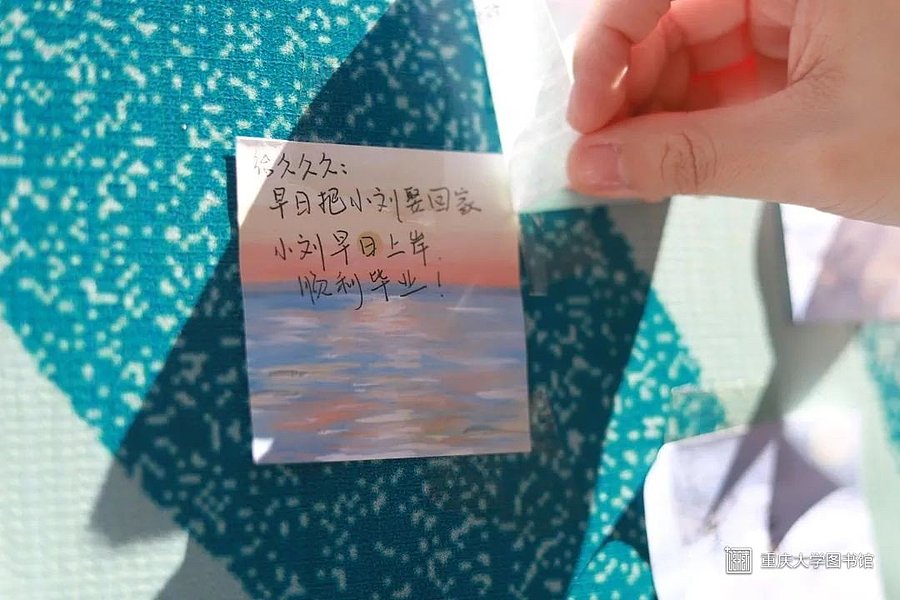 给久久久：
早日把小刘娶回家
小刘早日上岸.
顺利毕业！
重庆大学图书馆